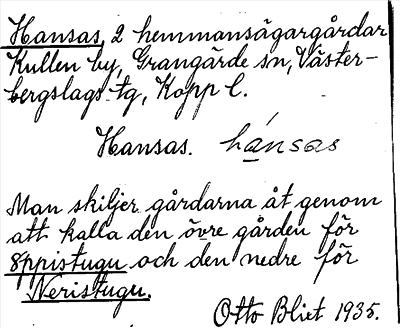 Hansas, 2 hemmansägargårdar
Kullen by, Grangärde sn, Väster-
bergslags tg, Kopp l.
Hansas. hánsas
Man skiljer gårdarna åt genom
att kalla den övre gården för
8ppistugu och den nedre för
Neristugu.
Otto Bliet 1935.